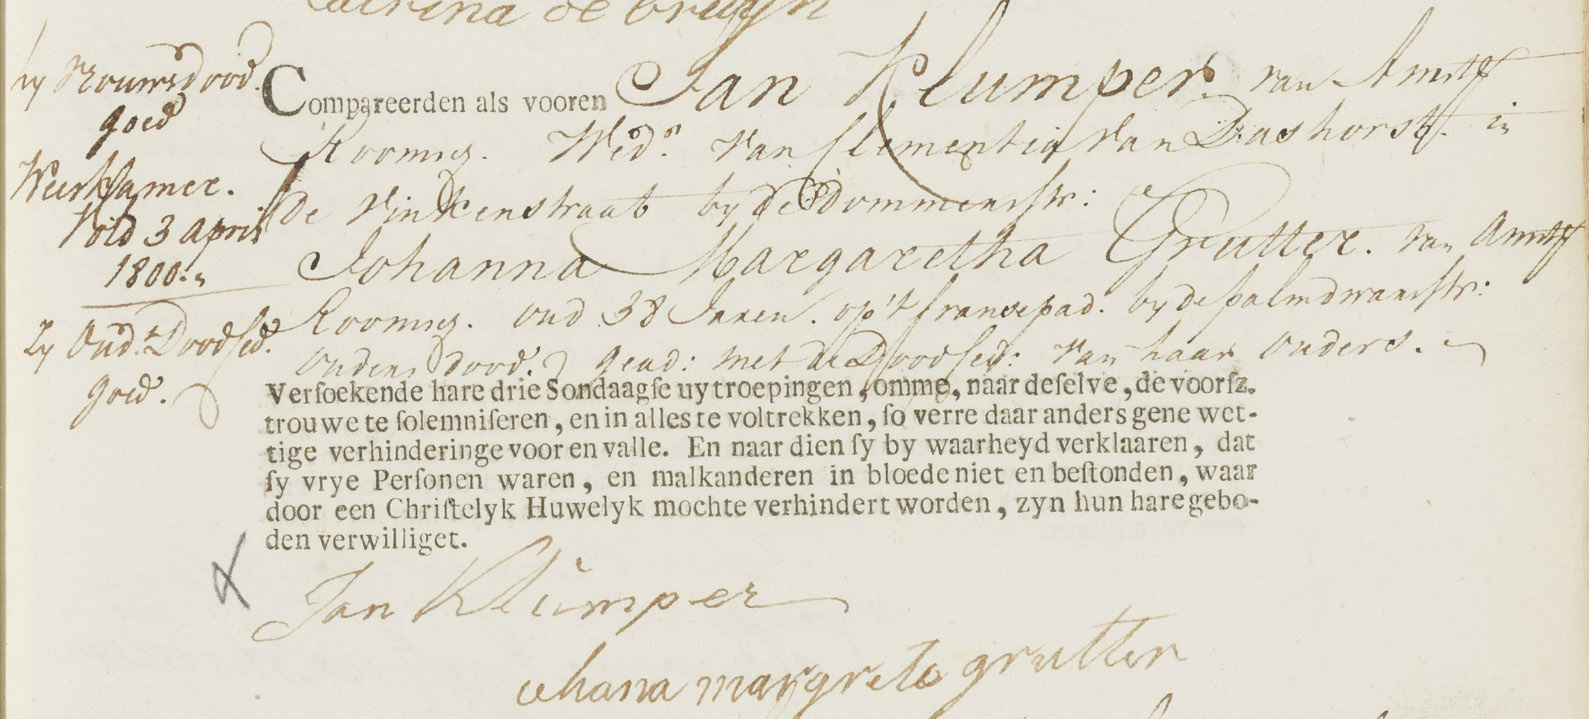 Catrina de Bruyn
hy Vrouws dood.
goed
Weeskamer.
vold 3 April
1800.
Zy Oud.s Doodsed.
goed.
Compareerden als vooren Jan Klumper. van Amst
Rooms. Wed.r van Clementia van Dashorst. in
de Vinkenstraat by de Dommerstr:
Johanna Margaretha Grutter. van Amst
Rooms. oud 38 Jaren. op 't franse pad. by de palmdwarsstr:
ouders dood. geads: met de Doodsed: van haar ouders.
Verſoekende hare drie Sondaagſe uytroepingen, omme, naar deſelve, de voorſz.
trouwe te ſolemniſeren, en in alles te voltrekken, ſo verre daar anders gene wet-
tige verhinderinge voor en valle. En naar dien ſy by waarheyd verklaaren, dat
ſy vrye Perſonen waren, en malkanderen in bloede niet en beſtonden, waar
door een Chriſtelyk Huwelyk mochte verhindert worden, zyn hun hare gebo-
den verwilliget.
Jan Klumper
ohana margreta grutter